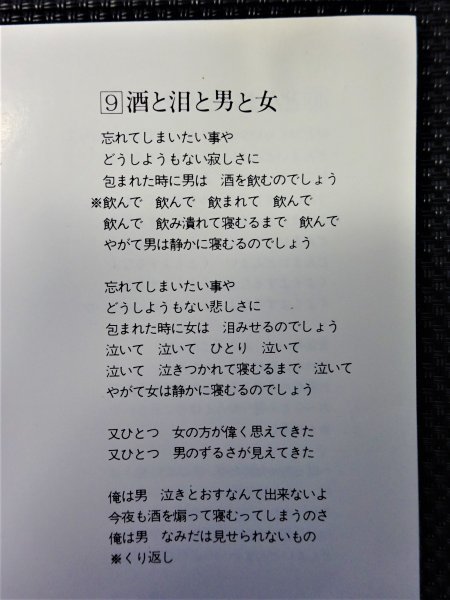 9 酒と泪と男と女
忘れてしまいたい事や
どうしようもない寂しさに
包まれた時に男は 酒を飲むのでしょう
※飲んで 飲んで 飲まれて 飲んで
飲んで 飲み潰れて寝むるまで 飲んで
やがて男は静かに寝むるのでしょう
忘れてしまいたい事や
どうしようもない悲しさに
包まれた時に女は 泪みせるのでしょう
泣いて 泣いて ひとり 泣いて
泣いて 泣きつかれて寝むるまで 泣いて
やがて女は静かに寝むるのでしょう
又ひとつ 女の方が偉く思えてきた
又ひとつ 男のずるさが見えてきた
俺は男 泣きとおすなんて出来ないよ
今夜も酒を煽って寝むってしまうのさ
俺は男 なみだは見せられないもの
※くり返し